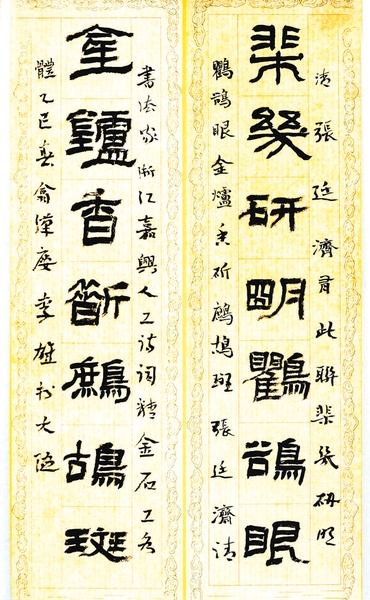 清張廷濟有此聯棐幾研明
棐幾研明鸜鵒眼
鸜鵒眼金爐香斷鷓鴣斑張廷濟清
書法家浙江嘉興人工詩詞精金石工各
金鑪香斷鷓鴣斑
體乙巳春李雄於大